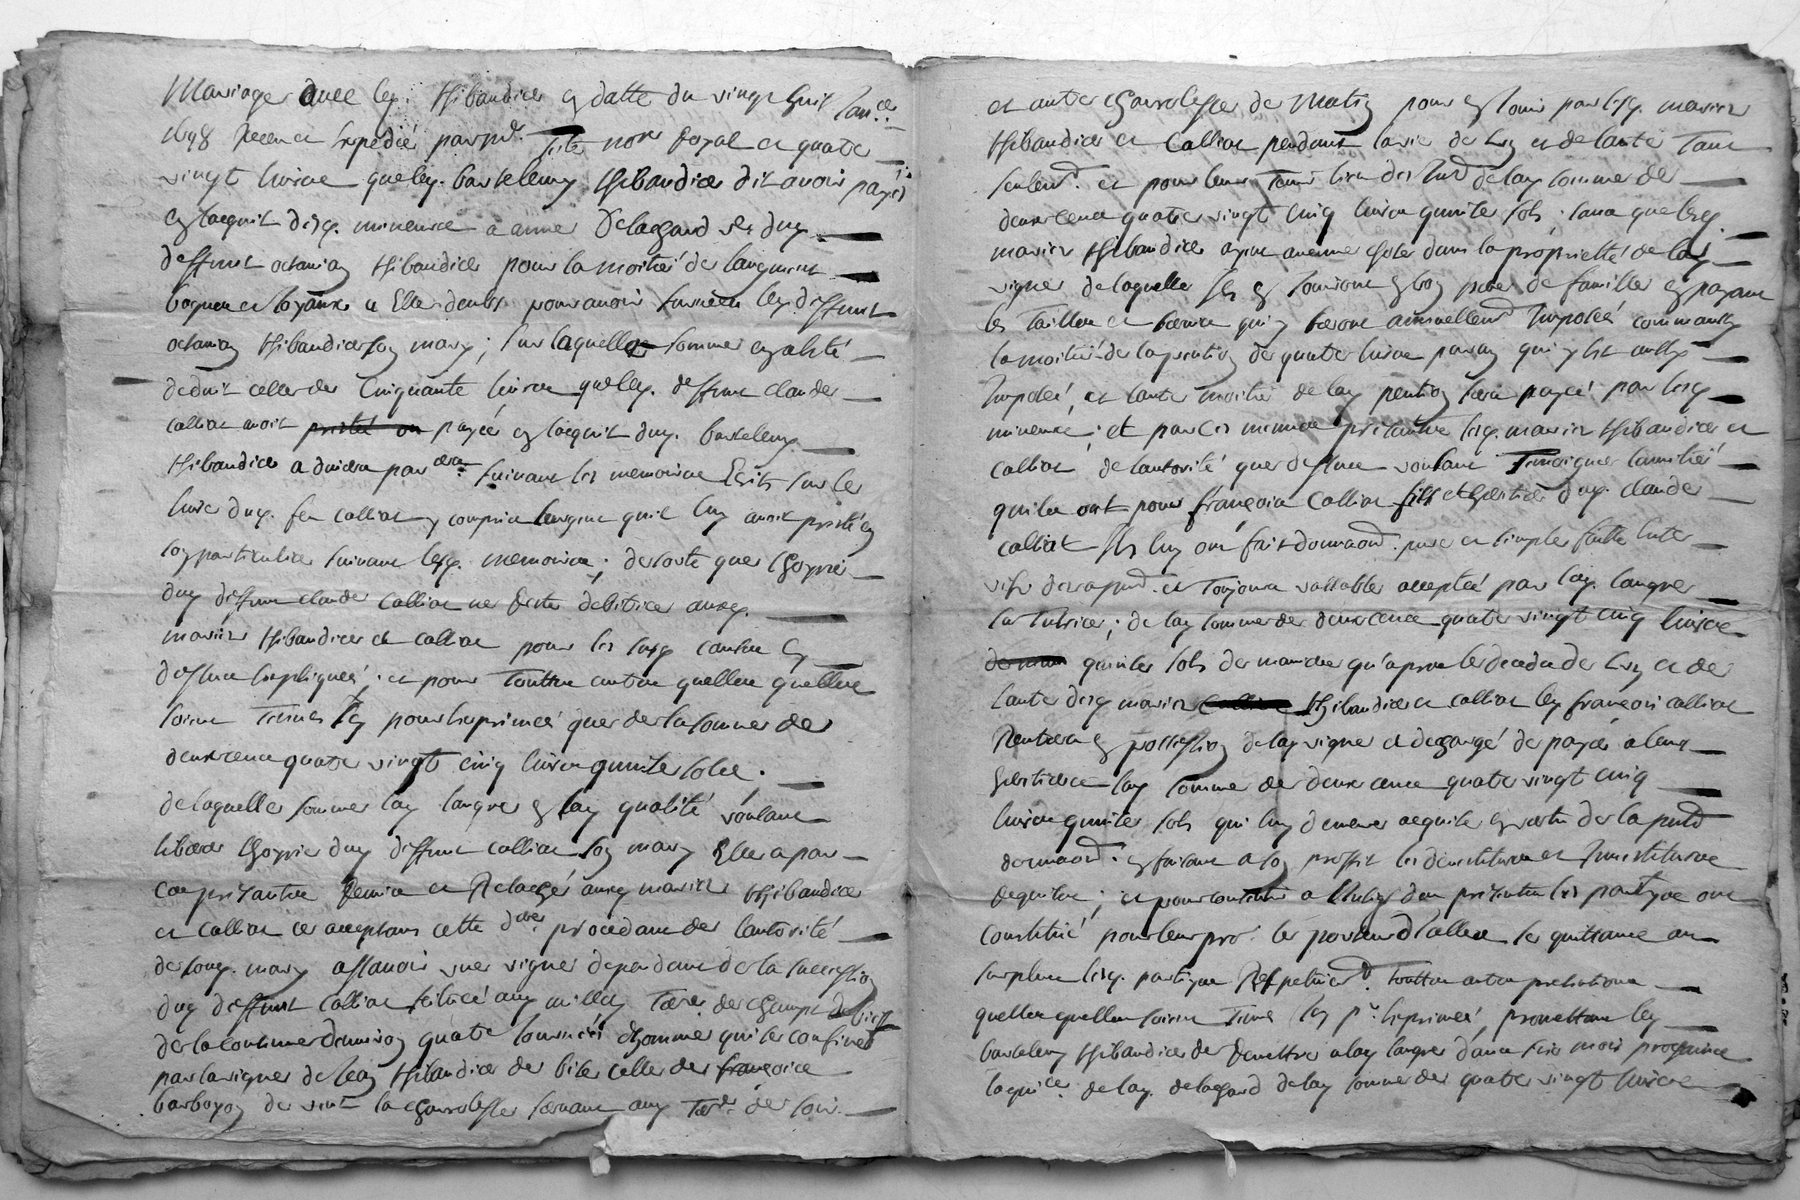 Mariage avec ley. thibaudier en datte du vingt huit Janer
1698 Receu et Expedié par me. Teste nore Royal et quatre
vingt livres que ley. bartelemy thibaudier dit avoir payés
en lacquit desy. mineures a anne Delachard Ve duy.
deffunt octavian thibaudier pour la moitié de laugment
bagues et Joyaux a Elle deubs pour avoir survécu ley. deffunt
octavian thibaudier son mary ; sur laquelle somme ayant été
deduit celle de Cinquante livres que ley. deffunt claude
calliat avoit payée en lacquit duy. bartelemy
thibaudier a divers par suivant les memoires Ecrits sur le
livre duy. feu calliat y compris largent quil luy avoit presté en
son particulier suivant lesy. memoires ; de sorte que lhoyrie
duy. deffunt claude calliat ne Reste debitrice auxy.
mariés thibaudier et calliat pour les susy. causes cy
dessus Expliquées ; et pour touttes autres quelles quelles
soient tenues Icy pour Exprimées que de la somme de
deux cent quatre vingt cinq livres quinze sols .
de laquelle somme lay. laugre en lay. qualité voulant
liberer lhoyrie duy. deffunt calliat son mary Elle a par
ces presantes Remis et Relaché auxy. mariés thibaudier
et calliat ce acceptans cette dere. procedant de lautorité
de sony. mary assavoir une vigne dependant de la succession
duy. deffunt calliat scituée auy. millery terre de champ
de la contenue denviron quatre journées dhomme qui se confine
par la vigne de Jean thibaudier de bise celle de françoise
barbayon de vent la charolesse servant auy. terre de soir
et autre charolesse de Matin pour en jouir par lesy. mariés
thibaudier et Calliat pendant la vie de lun et de lautre tant
seulemt. et pour leur tenir lieu des Ints de lay. somme de
deux cent quatre vingt cinq livres quinze sols . sans que lesy.
mariés thibaudier ayent aucune chose dans la propriette de lay.
vigne de laquelle Ils en jouiront en bon pere de famille en payant
les tailles et qui y seront annuellemt. Imposées
la moitié de la pention de quatre livres par an qui y est aussy
Imposée , et lautre moitié de lay. pention sera payée par lesy.
mineurs ; et par ces mesmes presantes lesy. mariés thibaudier et
calliat de lautorité que dessus voulant temoigner lamitié
quils ont pour françois Calliat fils et heritier duy. claude
calliat Ils luy ont fait donnaon. pure et simple faitte entre
vifs des apnt. et toujours vallable acceptée par lay. laugre
sa tutrice ; de lay. somme de deux cent quatre vingt cinq livres
quinze sols de maniere quapres le decedz de lun et de
lautre desy. mariés thibaudier et calliat ley. françois calliat
Rentrera en possession de lay. vigne et dechargé de payer a leurs
heritiers lay. somme de deux cent quatre vingt cinq
livres quinze sols qui luy demeure acquise en vertu de la pnte
donnaon. en faisant a son proffit les devestitures et Investitures
requises ; et pour consentir a lInsinon des presantes les partyes ont
constitué pour leur pror. le porteur dicelles se quittance au
surplus lesy. partyes Respectivemt. touttes autres pretentions
quelles quelles soient tenues Icy pr. Exprimées , promettant ley.
bartelemy thibaudier de Remettre a lay. laugre dans six mois prochains
lacquit de lay. delachard de lay. somme de quatre vingt livres